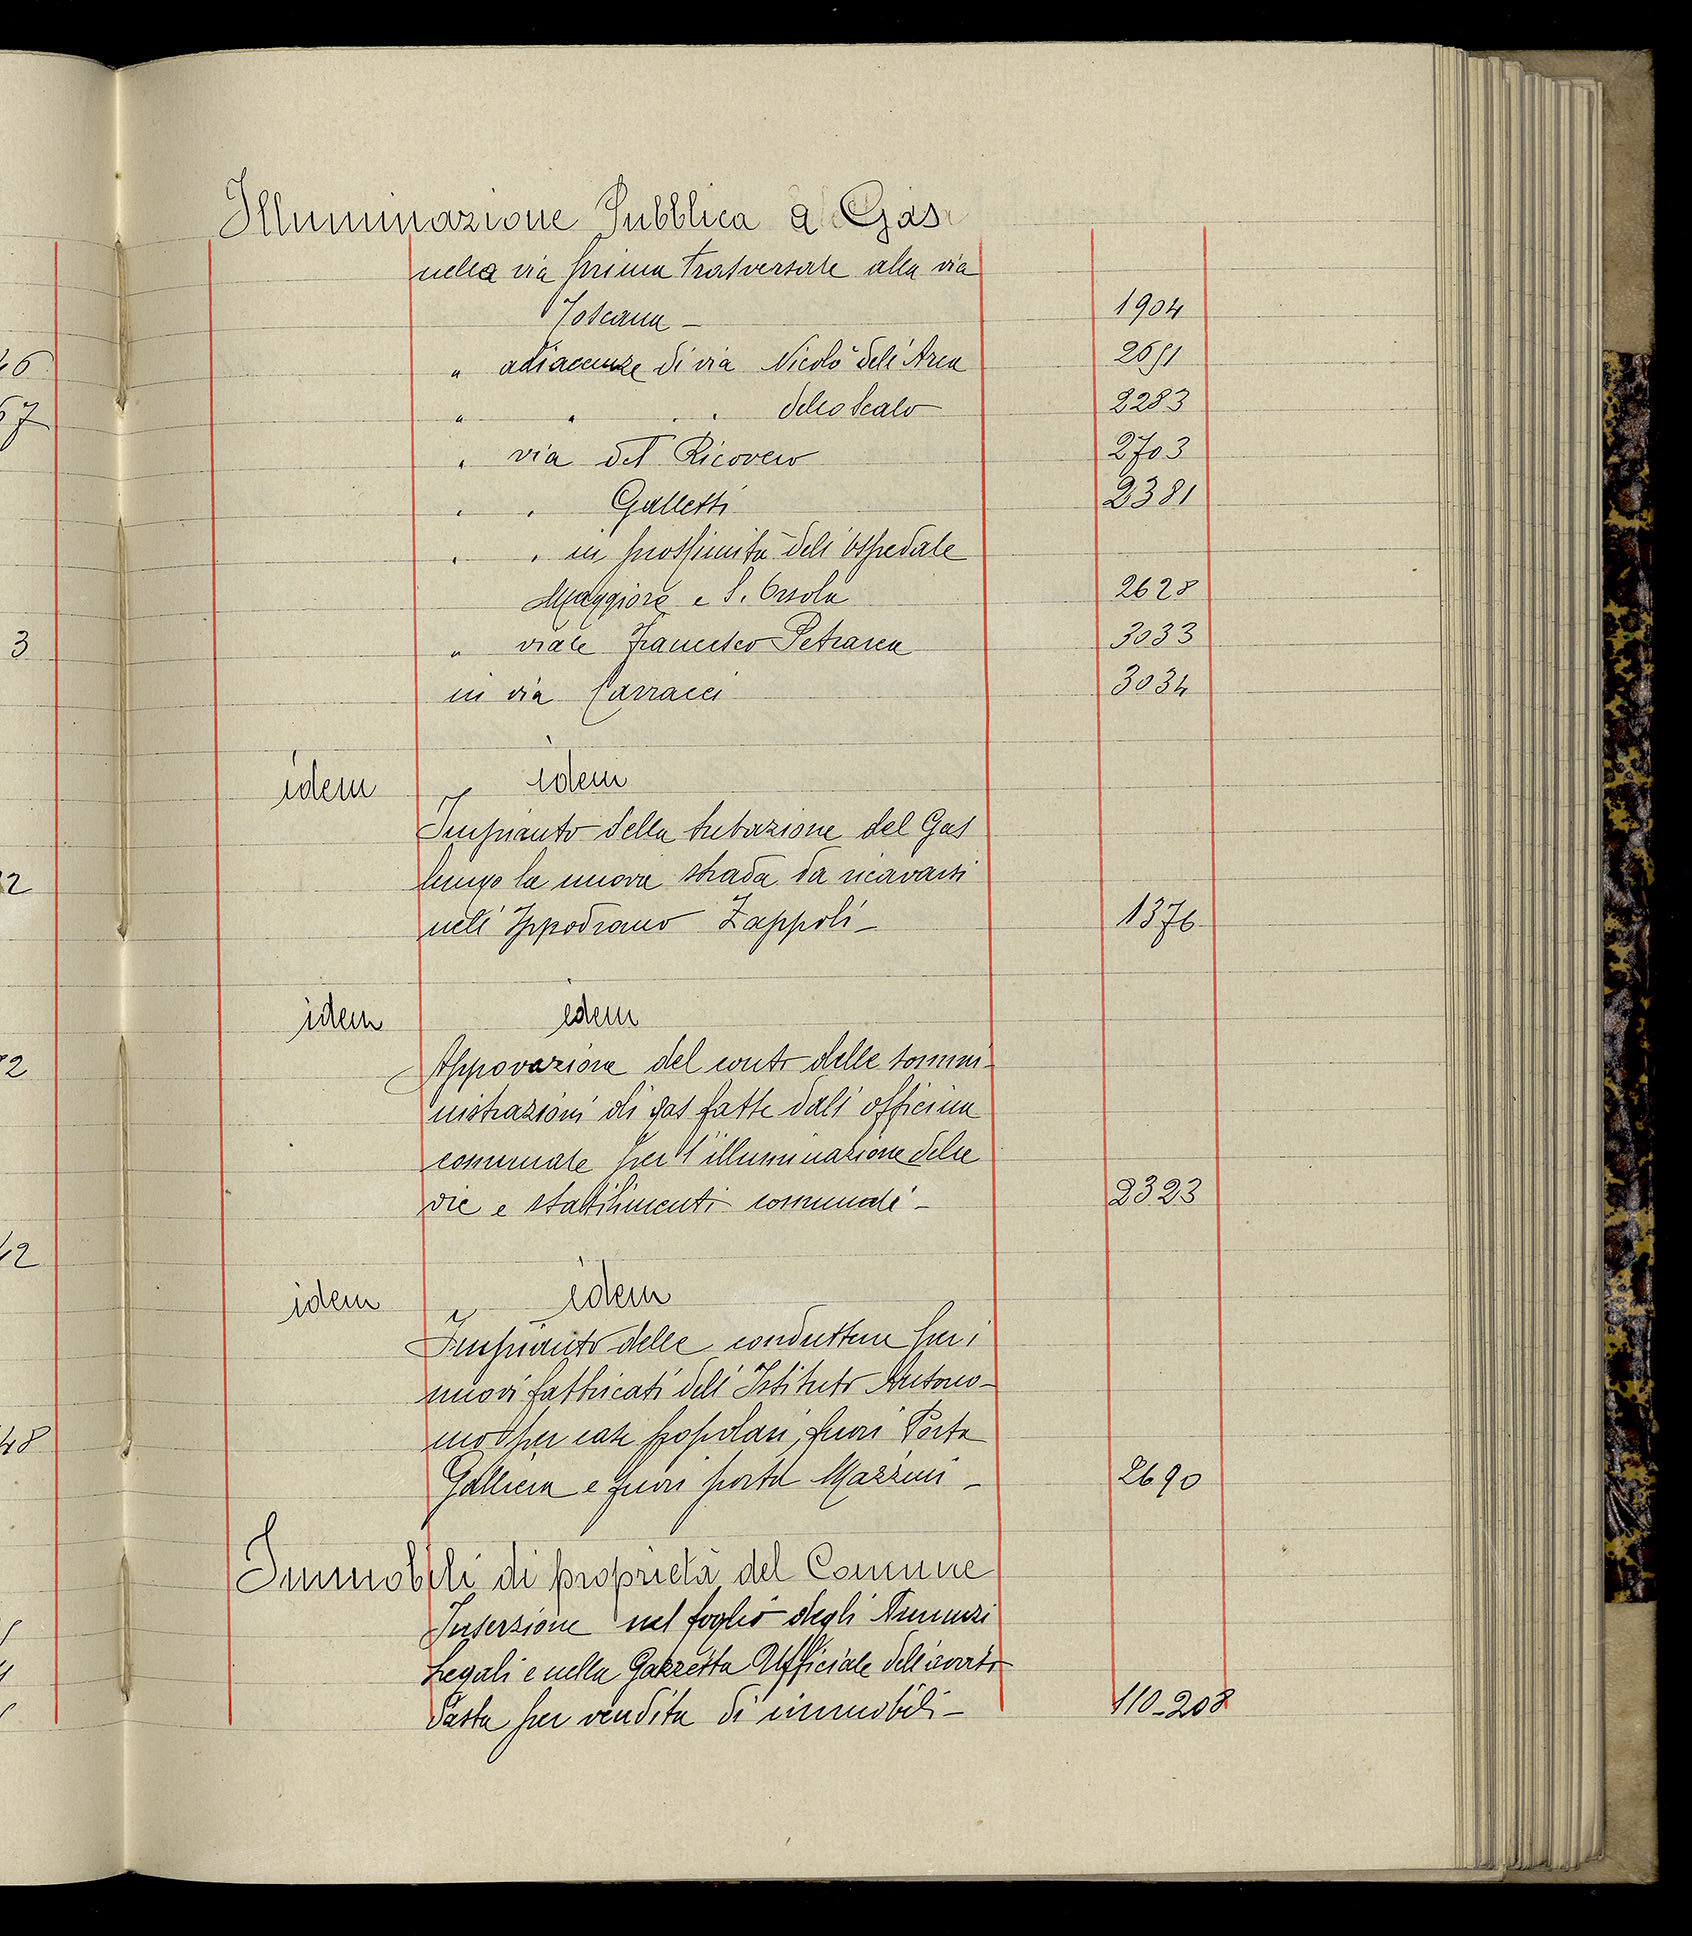 Illuminazione Pubblica a Gas
nella via prima trasversale alla via
Toscana - 1904
" adiacenze di via Nicolò dell'Arca 2691
" " " " dello Scalo 2283
" via del Ricovero 2703
" " Galletti 2381
" " in prossimità dell'Ospedale
Maggiore e S. Orsola 2628
" viale Francesco Petrarca 3033
in via Carracci 3034
idem idem
Impianto della tubazione del Gas
lungo la nuova strada da ricavarsi
nell'Ippodromo Zappoli - 1376
idem idem
Appovazione del conto delle sommi-
nistrazioni di gas fatte dall'officina
comunale per l'illuminazione delle
vie e stabilimenti comunali - 2323
idem idem
Impianto delle condutture per i
nuovi fabbricati dell'Istituto Autono-
mo per case popolari, fuori Porta
Galliera e fuori porta Mazzini - 2690
Immobili di proprietà del Comune
Inserzione nel foglio degli Annunzi
Legali e nella Gazzetta Ufficiale dell'avviso
d'asta per vendita di immobili - 110-208
46
67
3
2
72
42
48